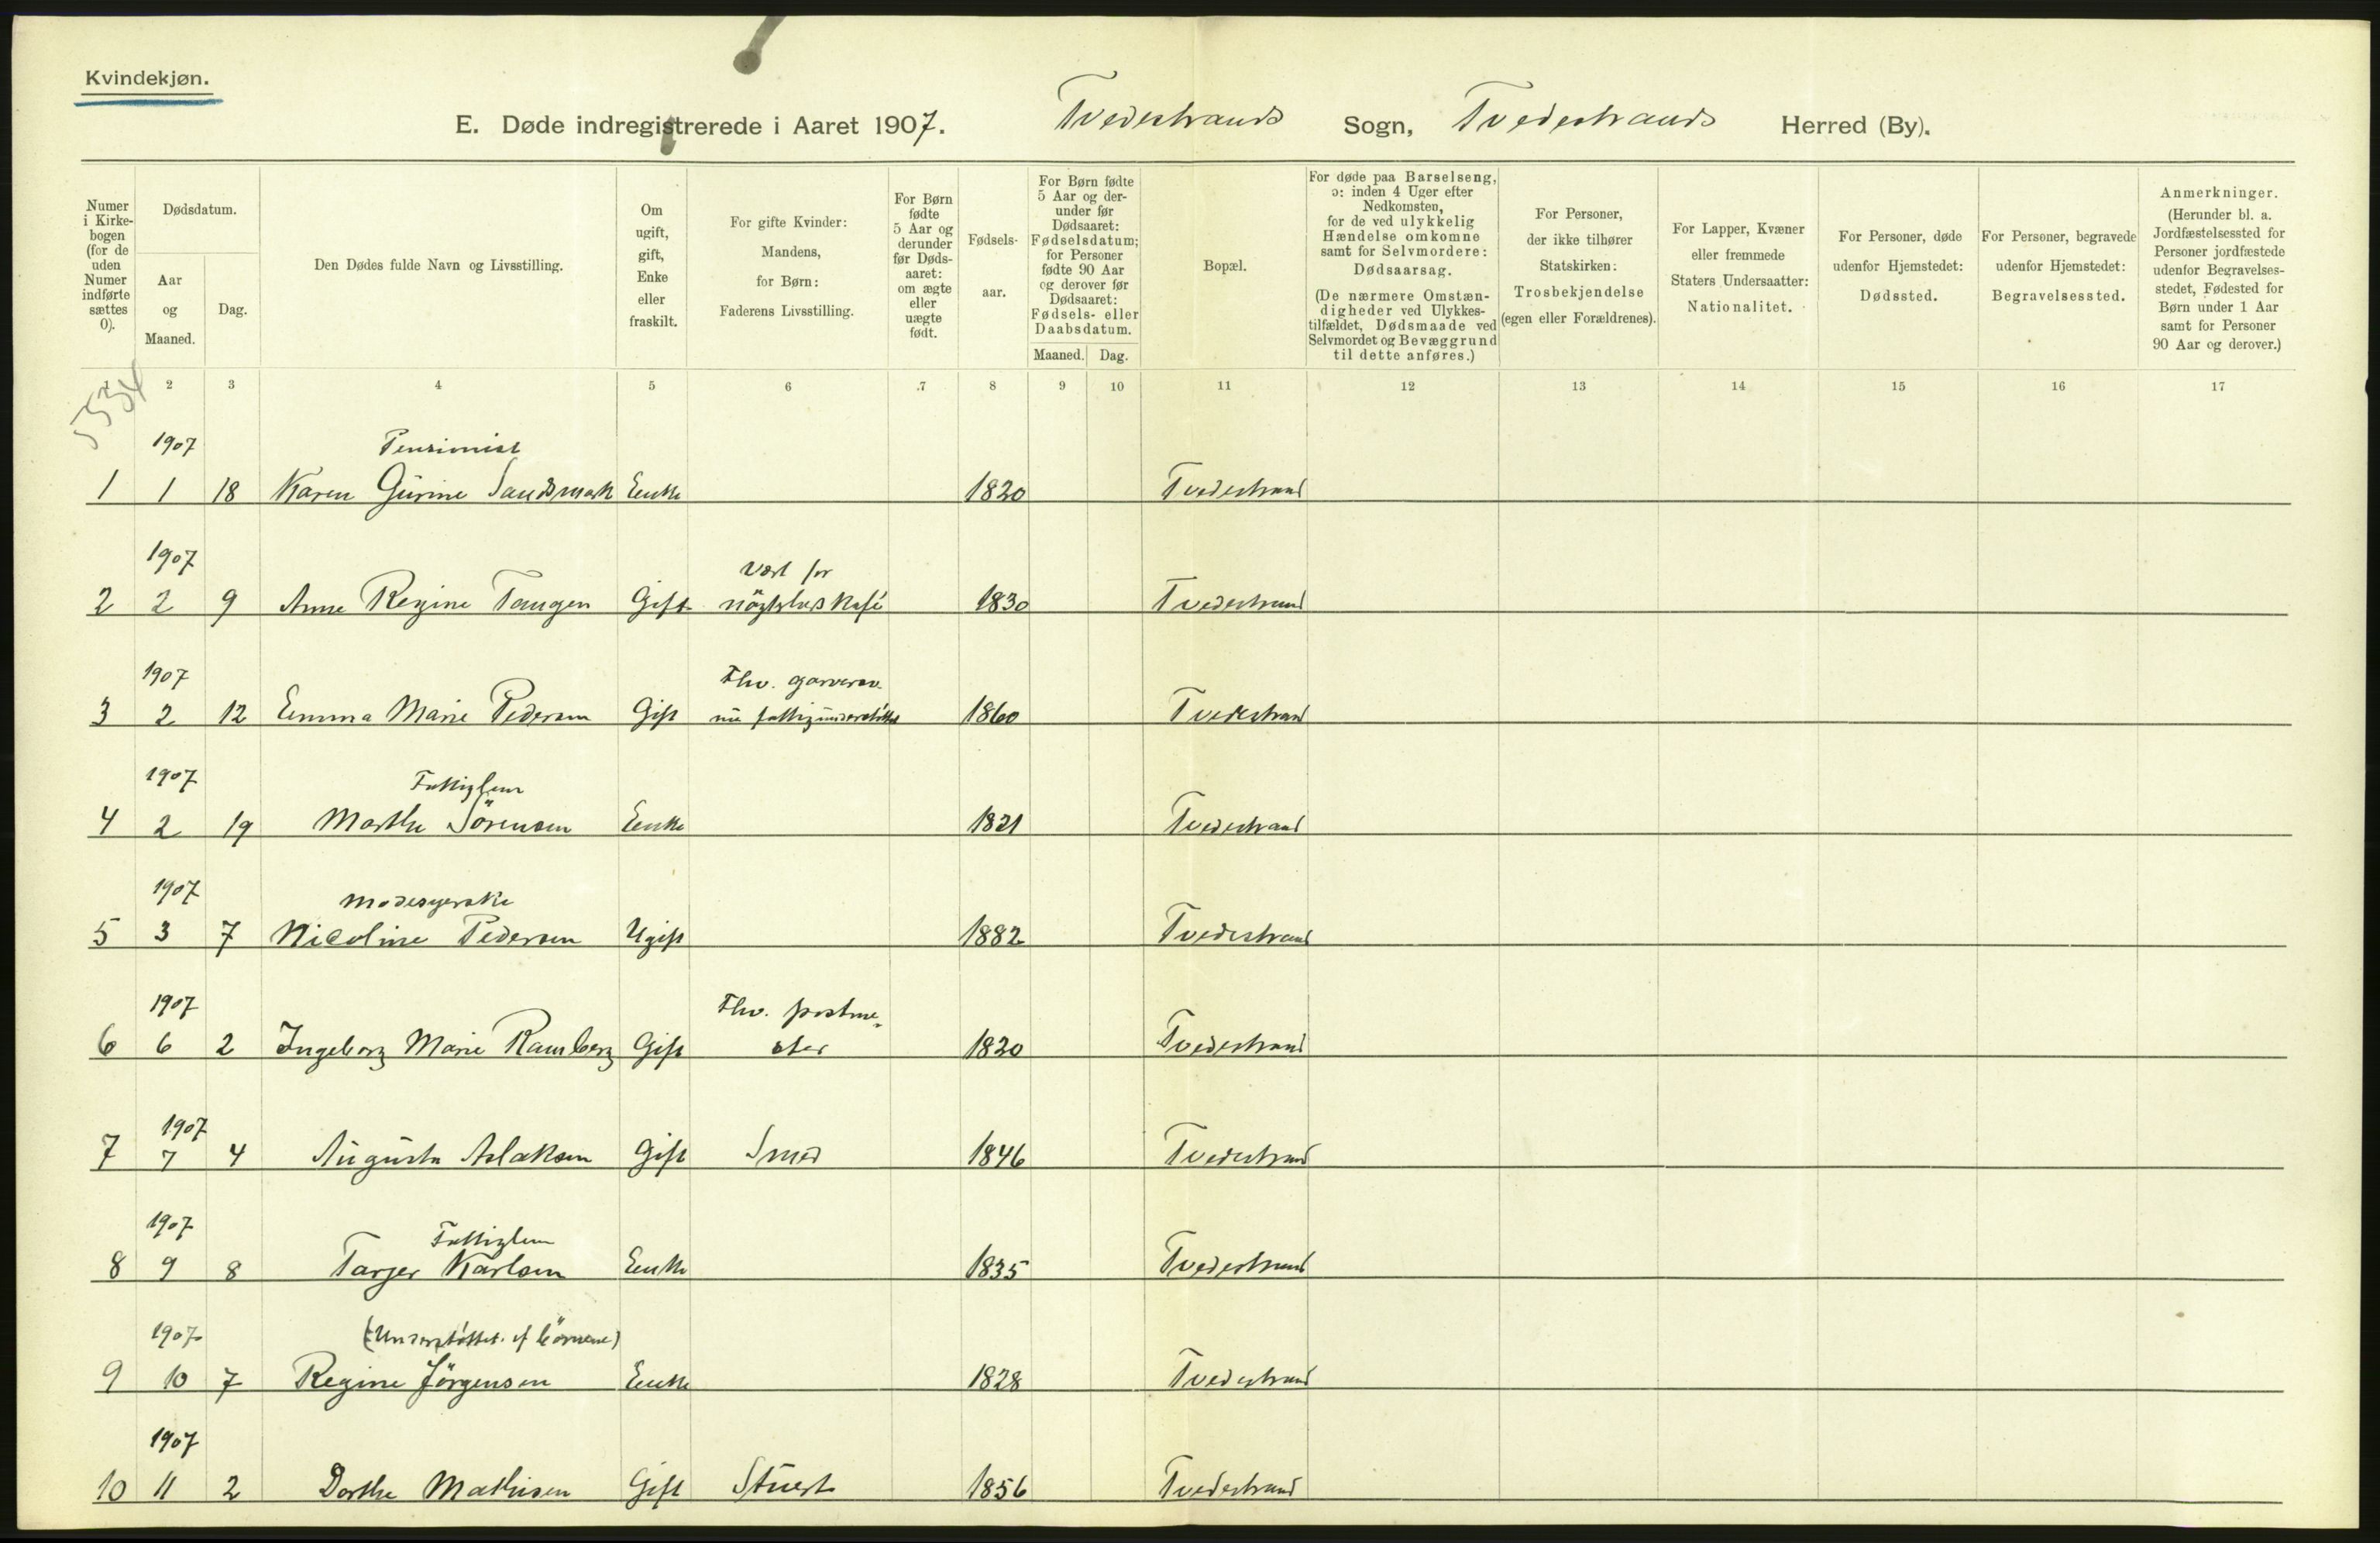 Kvindekjøn.
E. Døde indregistrerede i Aaret 1907. Tvedestrands Sogn, Tvedestrands Herred (By).
Numer i Kirkebogen (for de uden Numer indførte sættes 0).
Dødsdatum.
Aar og Maaned.
Dag.
Den Dødes fulde Navn og Livsstilling.
Om ugift, gift, Enke eller fraskilt.
For gifte Kvinder: Mandens, for Børn: Faderens Livsstilling.
For Børn fødte 5 Aar og derunder før Dødsaaret: om ægte eller uægte født.
Fødselsaar.
For Børn fødte 5 Aar og derunder før Dødsaaret: Fødselsdatum; for Personer fødte 90 Aar og derover før Dødsaaret: Fødsels- eller Daabsdatum.
Maaned. Dag.
Bopæl.
For døde paa Barselseng, ɔ: inden 4 Uger efter Nedkomsten, for de ved ulykkelig Hændelse omkomne samt for Selvmordere: Dødsaarsag. (De nærmere Omstændigheder ved Ulykkestilfældet, Dødsmaade ved Selvmordet og Bevæggrund til dette anføres.)
For Personer, der ikke tilhører Statskirken: Trosbekjendelse (egen eller Forældrenes).
For Lapper, Kvæner eller fremmede Staters Undersaatter: Nationalitet.
For Personer, døde udenfor Hjemstedet: Dødssted.
For Personer, begravede udenfor Hjemstedet: Begravelsessted.
Anmerkninger. (Herunder bl. a. Jordfæstelsessted for Personer jordfæstede udenfor Begravelsesstedet, Fødested for Børn under 1 Aar samt for Personer 90 Aar og derover.)
2 3 4 5 6 7 8 9 10 11 12 13 14 15 16 17
5534
1907 Pensionist
1 1 18 Karen Gurine Sandsmark Enke 1820 Tvedestrand
1907 Vært for
2 2 9 Anne Regine Tangen Gift 1830 Tvedestrand
1907 Fhv. garver
3 2 12 Emma Marie Pedersen Gift nu fattigunderstöttet 1860 Tvedestrand
1907 Fattiglem
4 2 19 Marthe Sörensen Enke 1821 Tvedestrand
1907 Modesyerske
5 3 7 Nicoline Pedersen Ugift 1882 Tvedestrand
1907 Fhv. postme-
6 6 2 Ingeborg Marie Ramberg Gift ster 1820 Tvedestrand
1907
7 7 4 Augusta Aslaksen Gift Smed 1846 Tvedestrand
1907 Fattiglem
8 9 8 Tarjer Karlsen Enke 1835 Tvedestrand
1907 (Understöttet af börnene)
9 10 7 Regine Jörgensen Enke 1828 Tvedestrand
1907
10 11 2 Dorthe Mathisen Gift Stuert 1856 Tvedestrand